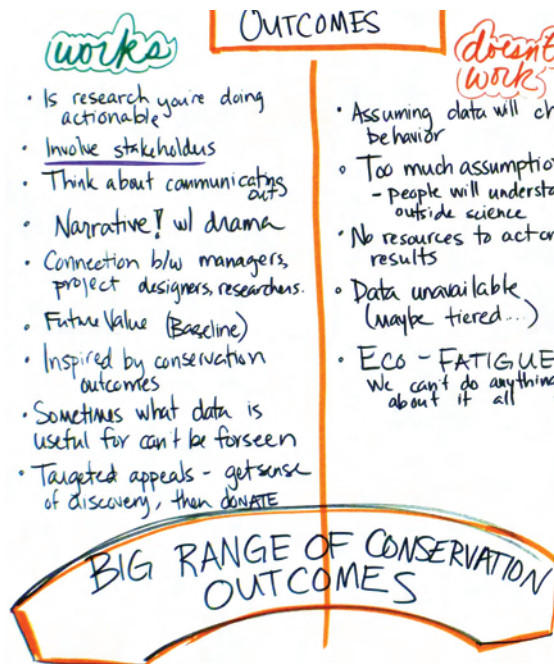 OUTCOMES
works
• Is research you're doing
actionable
• Involve stakeholders
• Think about communicating
out
• Narrative! w/ drama
• Connection b/w managers,
project designers, researchers.
• Future Value (Baseline)
• Inspired by conservation
outcomes
• Sometimes what data is
useful for can't be forseen
• Targeted appeals - get sense
of discovery, then DONATE
doesn't
work
• Assuming data will ch
behavior
• Too much assumption
- people will understa
outside science
• No resources to act on
results
• Data unavailable
(maybe tiered...)
• ECO-FATIGUE
We can't do anything
about it all
BIG RANGE OF CONSERVATION
OUTCOMES